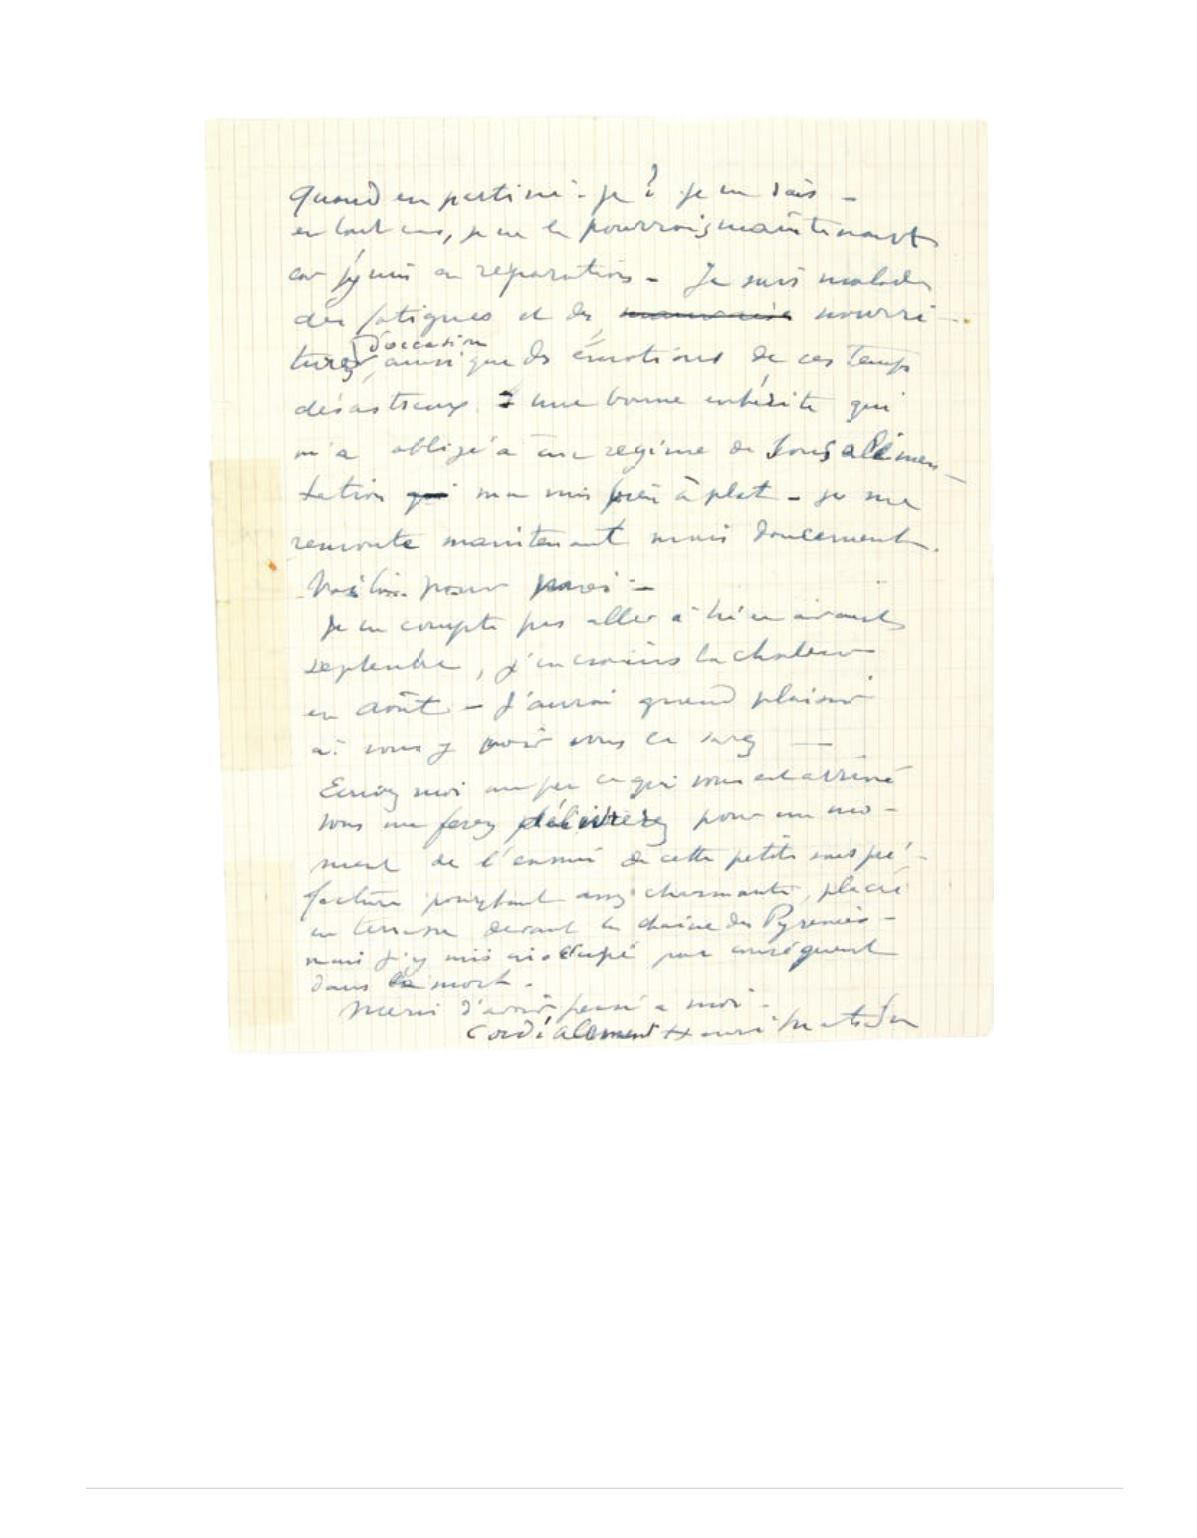 Quand en partirai-je? je ne sais –
en tout cas, je ne le pourrais maintenant
car j'y suis en réparation – Je suis malade
des fatigues et des mauvaises nourri-
tures d'occasion, ainsi que des émotions de ces temps
désastreux : une bonne entérite qui
m'a obligé à un régime de sous alimen-
tation qui m'a mis bien à plat – je me
remonte maintenant mais doucement.
Voilà pour moi –
Je ne compte pas aller à Nice avant
septembre, j'en crains la chaleur
en Août – J'aurai grand plaisir
à vous y voir vous le savez —
Ecrivez moi un peu ce qui vous est arrivé
vous me ferez délivrerez pour un mo-
ment de l'ennui de cette petite sous pré-
fecture pourtant assez charmante, placée
en terrasse devant la chaîne des Pyrenées –
mais j'y suis inoccupé par conséquent
dans la mort.
Merci d'avoir pensé à moi –
Cordialement Henri Matisse